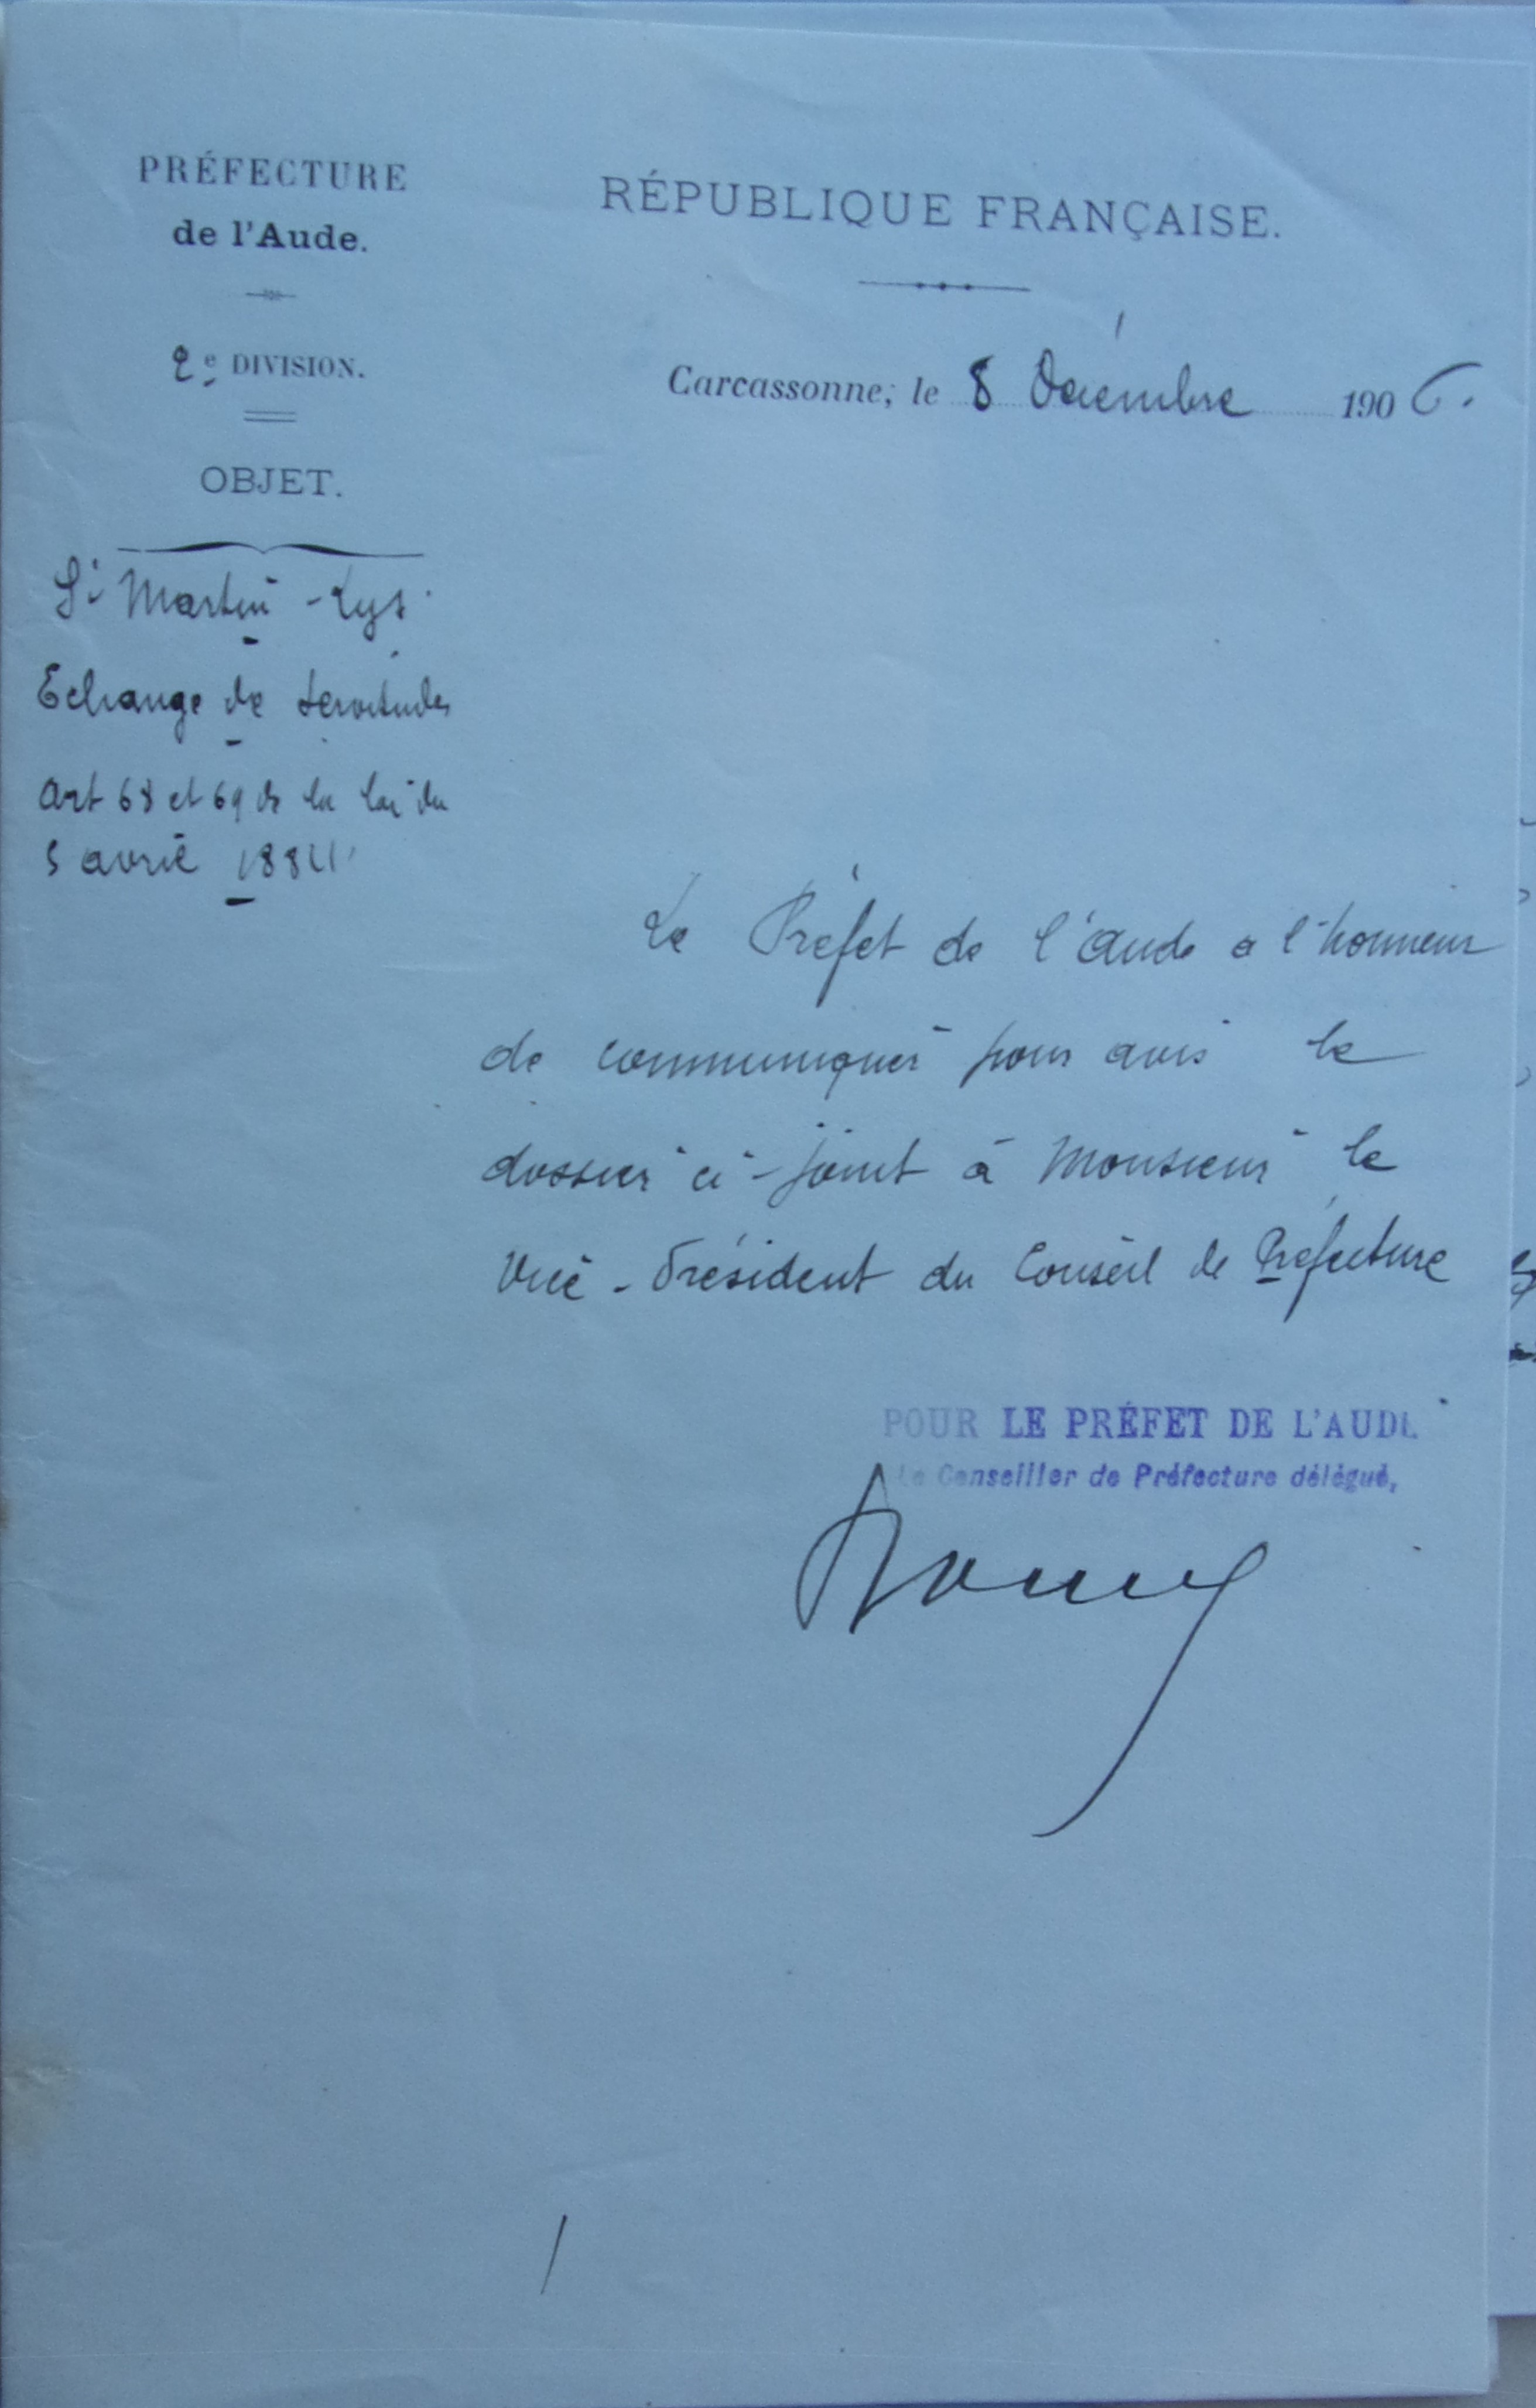 PRÉFECTURE
de l'Aude.
2e DIVISION.
OBJET.
St Martin-Lys
Echange de servitudes
Art 68 et 69 de la loi du
5 avril 1884
RÉPUBLIQUE FRANÇAISE.
Carcassonne, le 8 Décembre 1906.
Le Préfet de l'Aude a l'honneur
de communiquer pour avis le
dossier ci-joint à Monsieur le
Vice-Président du Conseil de Préfecture
POUR LE PRÉFET DE L'AUDE
Le Conseiller de Préfecture délégué,